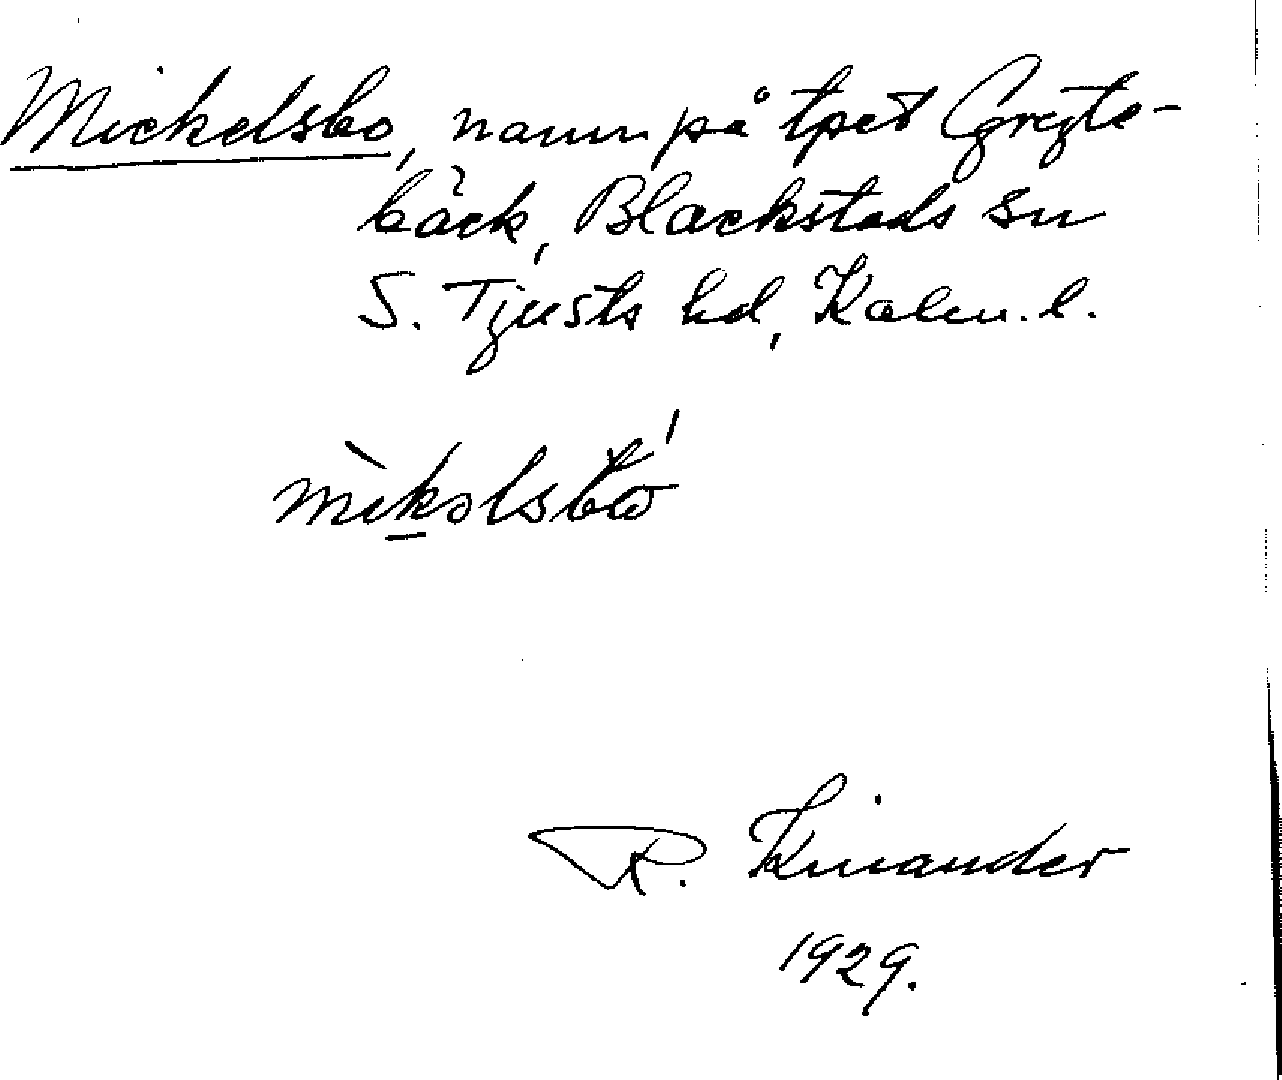 Mickelsbo, namn på tpet Gregte-
bäck, Blackstads sn
S. Tjusts hd, Kalm. l.
R. Kinander
1929.